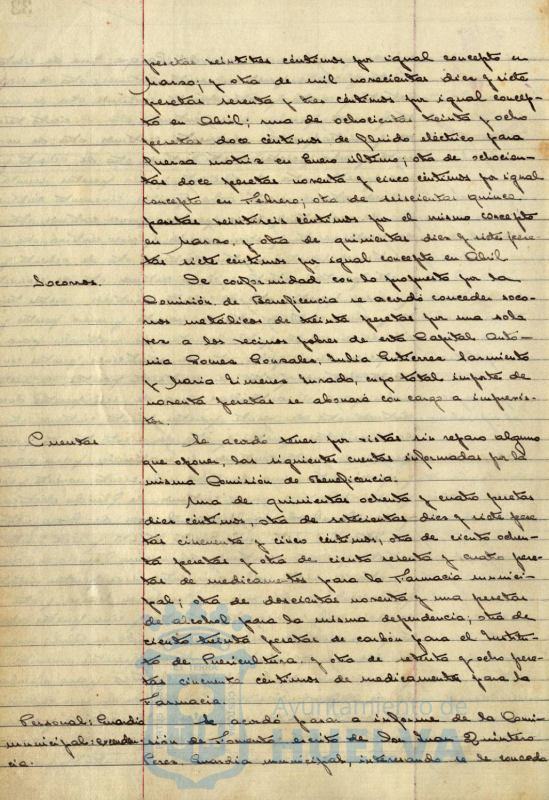 pesetas veintitres céntimos por igual concepto en
Marzo; y otra de mil novecientas diez y siete
pesetas sesenta y tres céntimos por igual concep-
to en Abril; una de ochocientas treinta y ocho
pesetas doce céntimos de fluido eléctrico para
fuerza motriz en Enero último; otra de ochocien-
tas doce pesetas noventa y cinco céntimos por igual
concepto en Febrero; otra de seiscientas quince
pesetas veintiseis céntimos por el mismo concepto
en Marzo, y otra de quinientas diez y siete pese
tas siete céntimos por igual concepto en Abril
Socorros. De conformidad con lo propuesto por la
Comisión de Beneficencia se acordó conceder soco-
rros metálicos de treinta pesetas por una sola
vez a los vecinos pobres de esta Capital Antó-
nia Gomez Gonzales, Julia Gutierrez Sarmiento
y Maria Jimenez Jurado, cuyo total importe de
noventa pesetas se abonará con cargo a imprevis-
tos.
Cuentas Se acordó tener por vistas sin reparo alguno
que oponer, las siguientes cuentas informadas por la
misma Comisión de Beneficencia.
Una de quinientas ochenta y cuatro pesetas
diez céntimos, otra de setecientas diez y siete pese
tas cincuenta y cinco céntimos, otra de ciento ochen-
ta pesetas y otra de ciento sesenta y cuatro pese-
tas de medicamentos para la Farmacia munici-
pal; otra de doscientas noventa y una pesetas
de alcohol para la misma dependencia; otra de
ciento treinta pesetas de carbón para el Institu-
to de Puericultura, y otra de setenta y ocho pese-
tas cincuenta céntimos de medicamentos para la
Farmacia.
Personal: Guardia Se acordó pasar a informe de la Comi-
municipal: exceden- sión de Fomento escrito de Don Juan Quintero
cia. Perez, Guardia municipal, interesando se le conceda
Ayuntamiento de
HUELVA